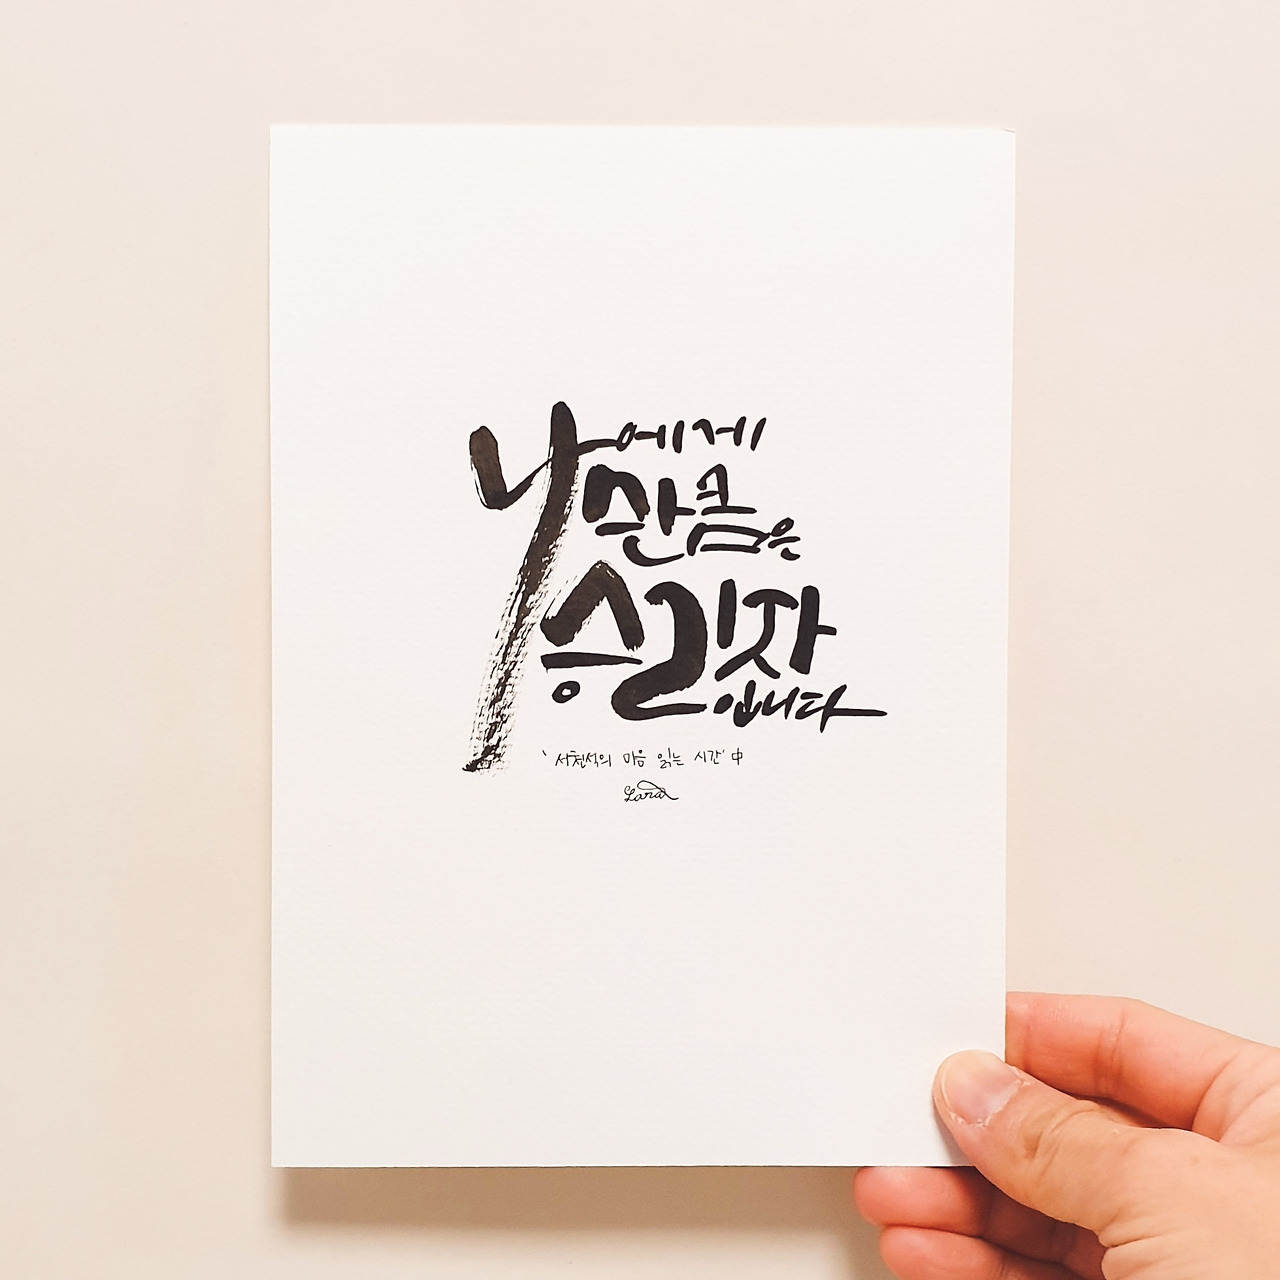 나에게
만큼은
승리자
입니다
'서천석의 마음 읽는 시간' 中
Lara